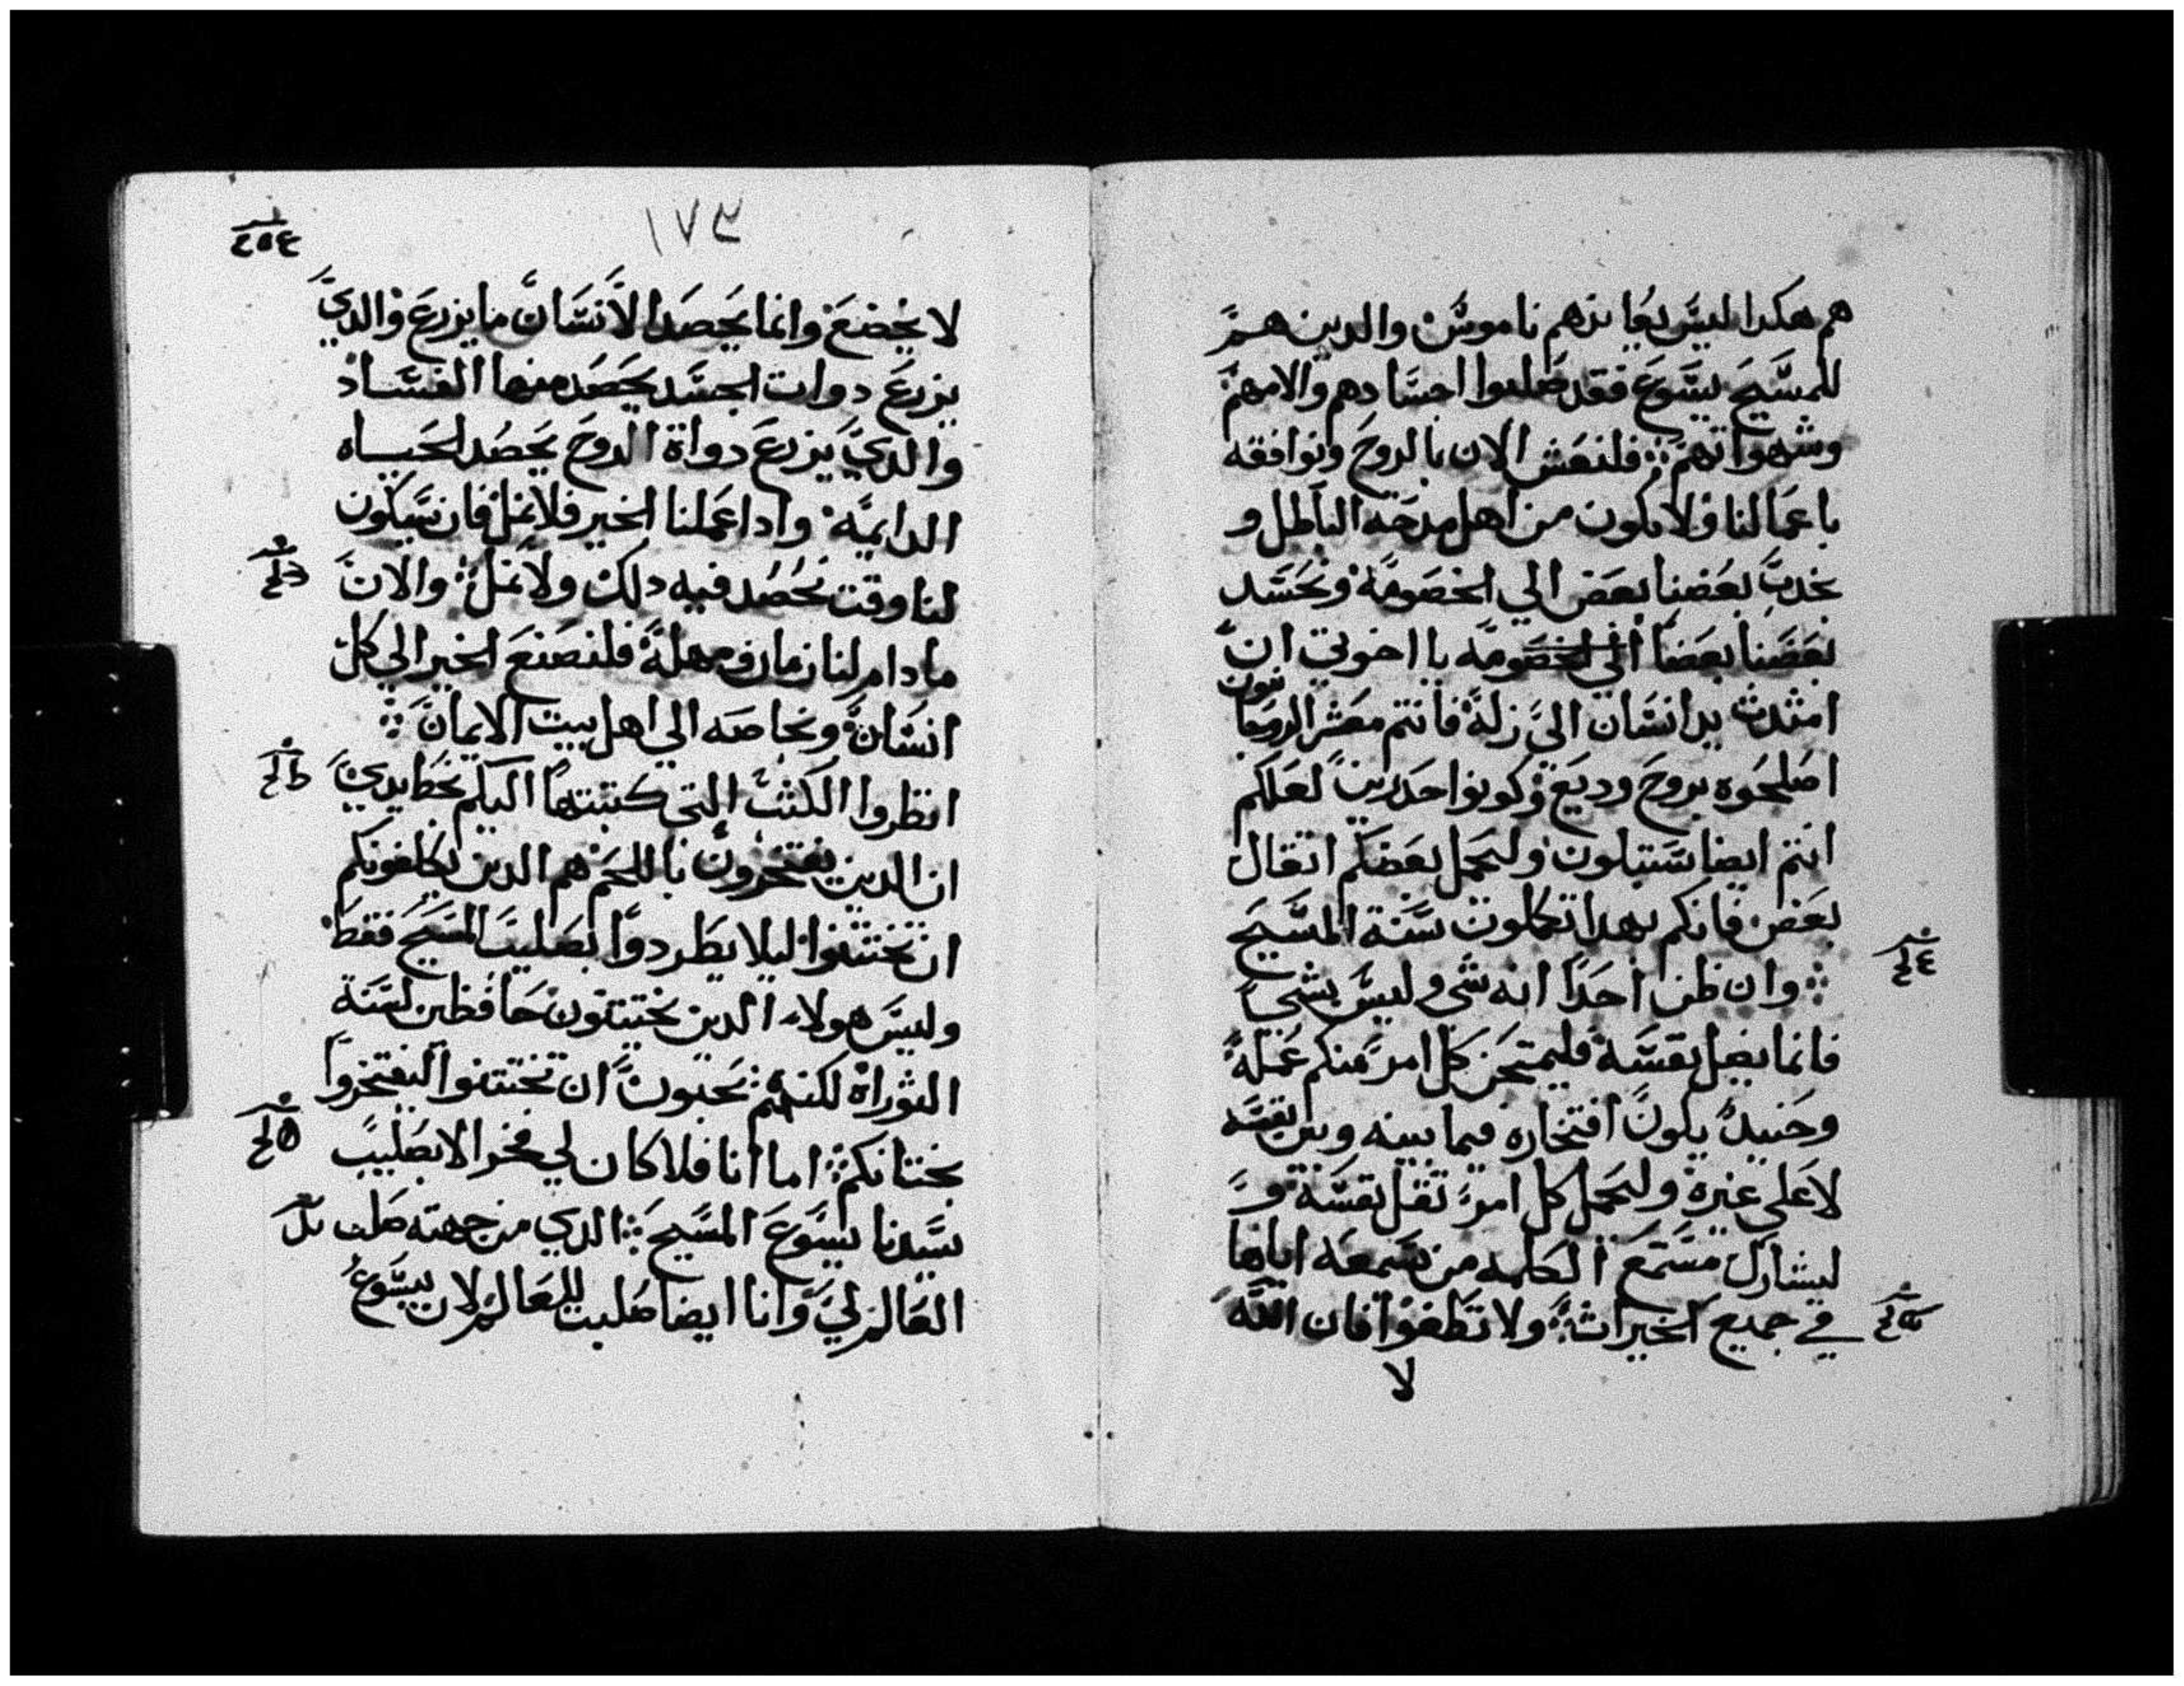 هم هكدا ليس يعاندهم ناموس والدين هم
للمسيح يسوع فقد صلبوا اجسادهم والامهم
وشهواتهم فلنعش الان بالروح ونوافقه
باعمالنا ولا نكون من اهل مدحه الباطل و
يحدب بعضنا بعض الي الخصومة ونحسد
بعضنا بعضا الي الخصومه يا اخوتي ان
امتدت يد انسان الي زلة فانتم معشر الروحانيون
اصلحوه بروح وديع وكونوا حدرين لعلكم
انتم ايضا ستبلون وليحمل بعضكم اتقال
بعض فانكم بهدا تكملون سنة المسيح
وان ظن احدا انه شي وليس بشي
فانما يضل نفسه فليمتحن كل امر منكم عمله
وحنيد يكون افتخاره فيما بينه وبين نفسه
لا علي غيره وليحمل كل امر تقل نفسه و
ليشارك مستمع الكلمه من سمعه اياها
في جميع الخيرات ولا تطغوا فان الله
لا
١٧٣
لا يخضع وانما يحصد الانسان ما يزرع والدي
يزرع دوات الجسد يحصد منها الفساد
والدي يزرع دواة الروح يحصد الحياه
الدايمة وادا عملنا الخير فلا نمل فان سيكون
لنا وقت نحصد فيه دلك ولا نمل والان
ما دام لنا زمان ومهلة فلنصنع الخير الي كل
انسان وبخاصه الي اهل بيت الايمان
انظروا الكتب التي كتبتها اليكم بخط يدي
ان الدين يفتخرون باللحم هم الدين يكلفونكم
ان تختتنوا ليلا يطردوا بصليب المسيح فقط
وليس هولاء الدين يختتنون حافظين لسنة
التوراة لكنهم يحبون ان تختتنوا ليفتخروا
بختانكم اما انا فلا كان لي فخر الا بصليب
سيدنا يسوع المسيح الدي من جهته صلب
العالم لي وانا ايضا صلبت للعالم لان يسوع